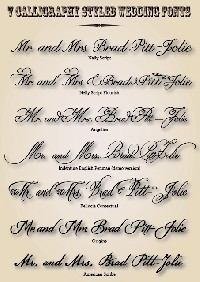 V CALLIGRAPHY STYLED WEDDING FONTS
Mr. and Mrs. Brad Pitt-Jolie
Nelly Script
Mr. and Mrs. Brad Pitt-Jolie
Nelly Script Flourish
Mr. and Mrs. Brad Pitt-Jolie
Angelica
Mr. and Mrs. Brad Pitt-Jolie
English Penman (demo version)
Mr. and Mrs. Brad Pitt-Jolie
Contextual
Mr. and Mrs. Brad Pitt-Jolie
Origins
Mr. and Mrs. Brad Pitt-Jolie
Scribe